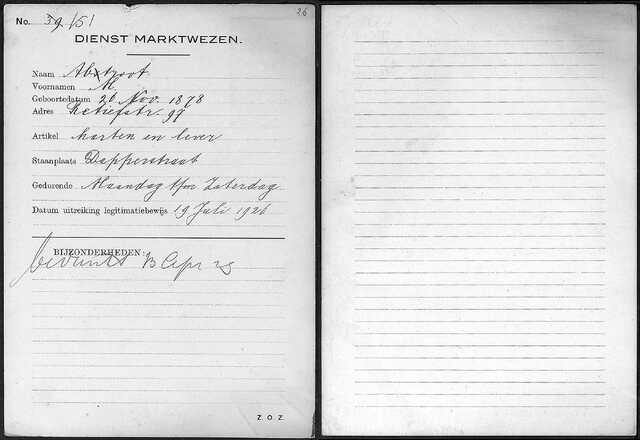 26
No. 39/51
DIENST MARKTWEZEN.
Naam Abstroot
Voornamen M.
Geboortedatum 26 Nov. 1878
Adres Retiefstr. 97
Artikel harten en lever
Staanplaats Dapperstraat
Gedurende Maandag t/m Zaterdag.
Datum uitreiking legitimatiebewijs 19 Juli 1926
BIJZONDERHEDEN:
Apr
Z. O. Z.